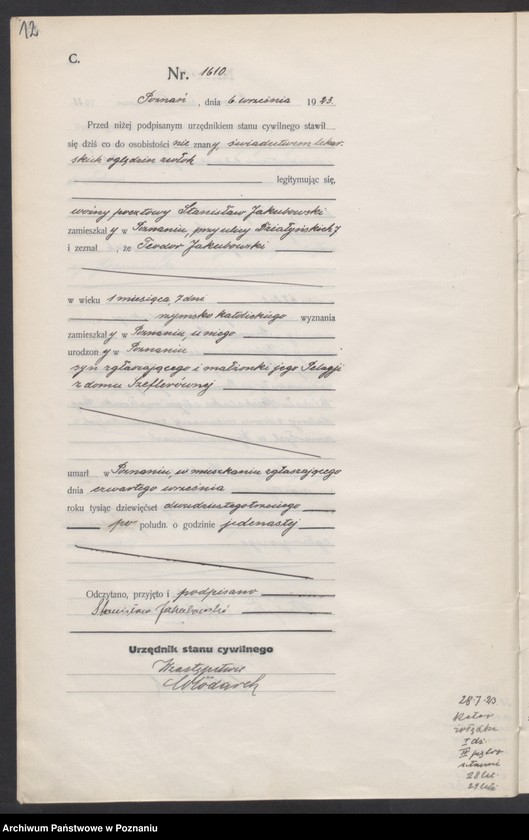 12
C.
Nr. 1610.
Poznań, dnia 6 września 1923.
Przed niżej podpisanym urzędnikiem stanu cywilnego stawił
się dziś co do osobistości nie znany, świadectwem lekar-
skich oględzin zwłok
legitymując się,
woźny pocztowy Stanisław Jakubowski
zamieszkały w Poznaniu, przy ulicy Działyńskich 7
i zeznał, że Teodor Jakubowski
w wieku 1 miesiąca, 7 dni
rzymsko katolickiego wyznania
zamieszkały w Poznaniu, u niego
urodzony w Poznaniu
syn zgłaszającego i małżonki jego Pelagji
z domu Szeflerównej
umarł w Poznaniu, w mieszkaniu zgłaszającego
dnia czwartego września
roku tysiąc dziewięćset dwudziestego trzeciego
po połudn. o godzinie jedenastej
Odczytano, przyjęto i podpisano
Stanisław Jakubowski
Urzędnik stanu cywilnego
W zastępstwie
Włodarek
28.7.23
Katar
żołądka
I dz.
28 lat
29 lat
Archiwum Państwowe w Poznaniu